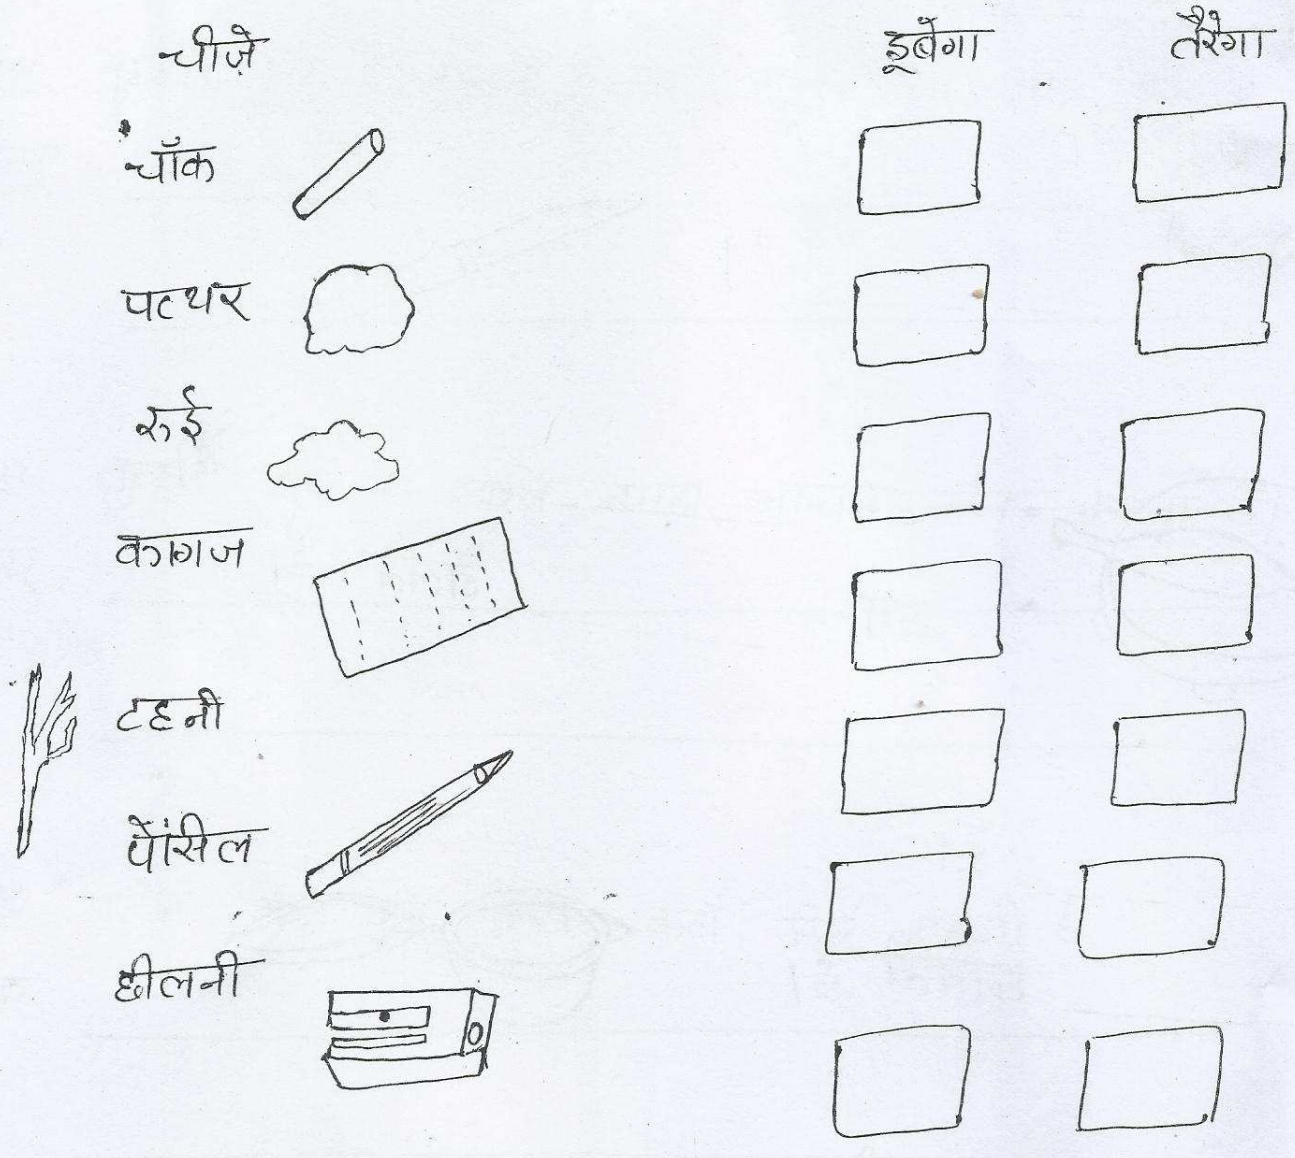 चीज़े डूबेगा तैरेगा
चॉक
पत्थर
रुई
कागज
टहनी
पेंसिल
छीलनी